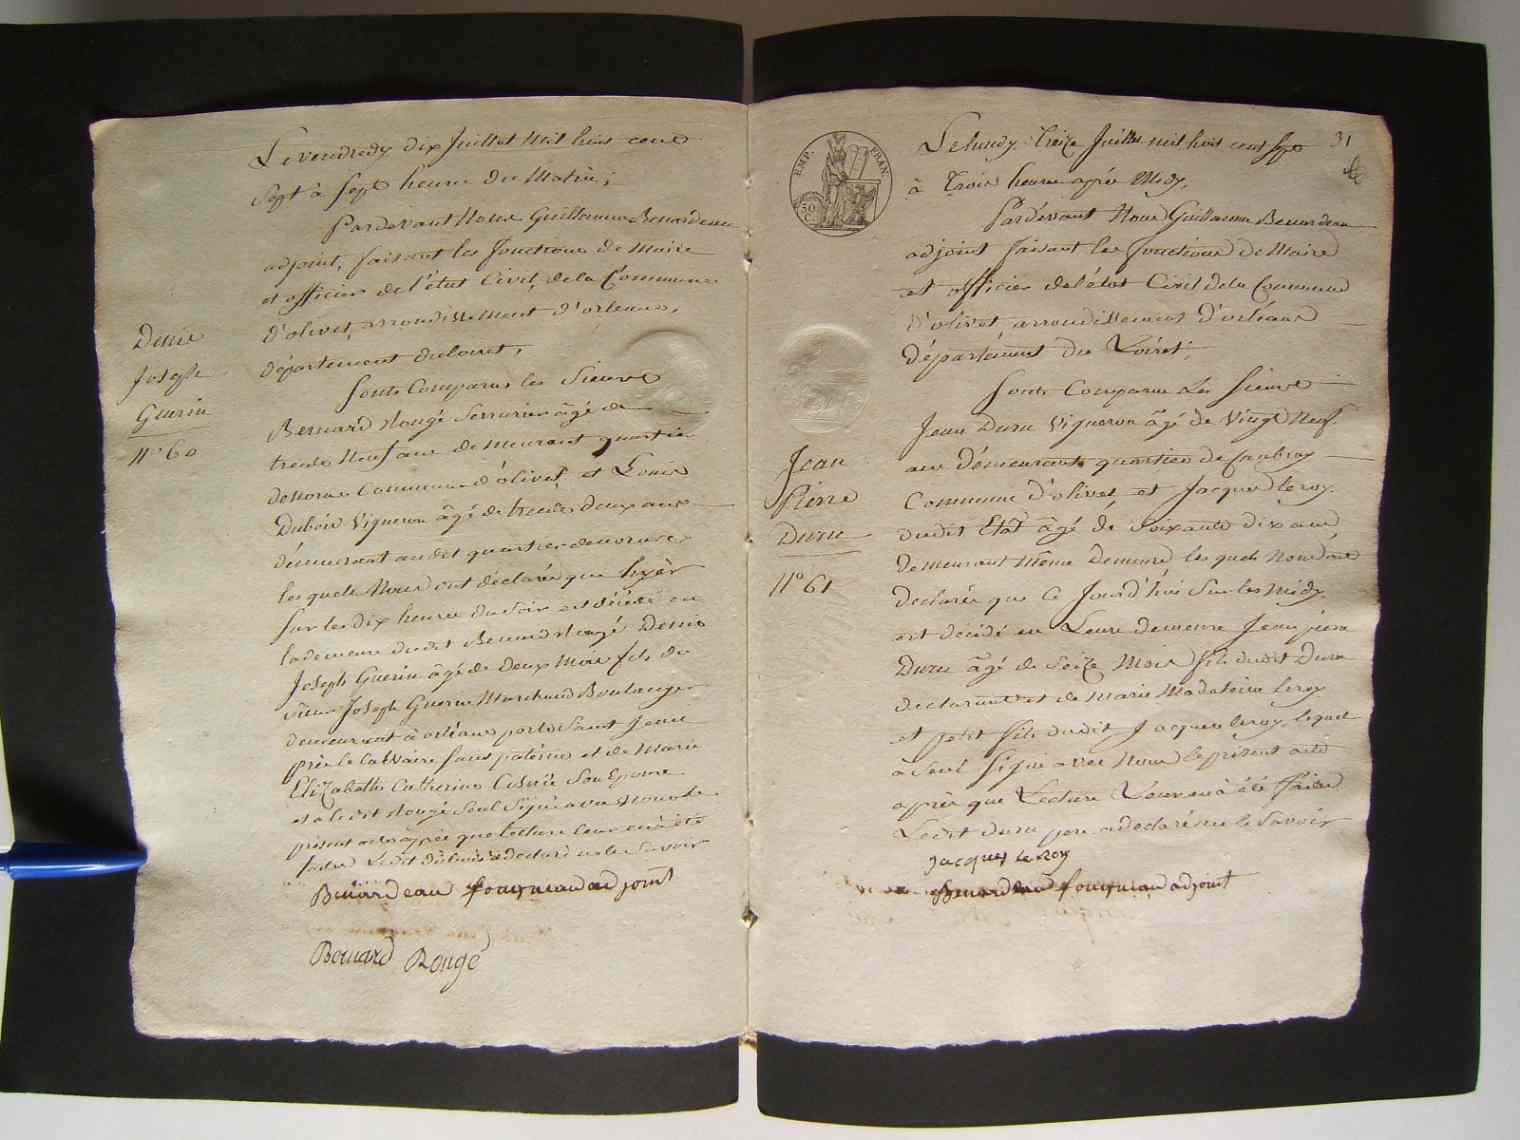 Le vendredy dix Juillet mil huit cent
Sept à Sept heure du Matin;
Pardevant Nous Guillaume Benardeau
adjoint, faisant les fonctions de Maire
et officier de l'état Civil, de la Commune
d'olivet, arrondissement d'orleans,
département du loiret,
Sont Comparus les Sieurs
Bernard Rougé Serrurier âgé de
trente Neuf ans demeurant quartier
Commune d'olivet, et Louis
Dubois Vigneron âgé de trente deux ans
demeurant audit quartier
les quels Nous ont déclarés que hyer
Sur les dix heures du Soir est décédé en
la demeure dudit Bernard Rougé Denis
Joseph Guerin âgé de deux Mois fils de
Sieur Joseph Guerin Marchand Boulanger
demeurant à orléans porte Saint Jean
près le Calvaire Sans patente et de Marie
Elizabette Catherine Son Epouse
et a ledit Rougé Seul Signé avec Nous le
présent acte après que lecture leur en a été
faite Ledit dubois a declaré ne le Savoir
Benardeau fouqueau adjoint
Bernard Rougé
Denis
Joseph
Guerin
N° 60
31
EMP. FRAN.
50 C.
Le lundy treize Juillet mil huit cent Sept
à trois heures après Midy,
Pardevant Nous Guillaume Benardeau
adjoint faisant les fonctions de Maire
et officier de l'état Civil de la Commune
d'olivet, arrondissement d'orléans
département du Loiret,
Sont Comparus Les Sieurs
Jean Duru Vigneron âgé de Vingt Neuf
ans demeurant quartier de Caubray
Commune d'olivet et Jacques leroy
dudit Etat âgé de Soixante dix ans
demeurant même demeure, les quels Nous ont
declarés que Ce Jourd'hui Sur les midy
est décédé en Leure demeure Jean pierre
Duru âgé de Seize Mois fils dudit Duru
declarant et de Marie Madelaine leroy
et petit fils dudit Jacques leroy, lequel
a Seul Signé avec Nous le présent acte
après que Lecture Leur en à été faite
Ledit duru pere a declaré ne le Savoir
Jacques Le Roy
Benardeau fouqueau adjoint
Jean
Pierre
Duru
N° 61